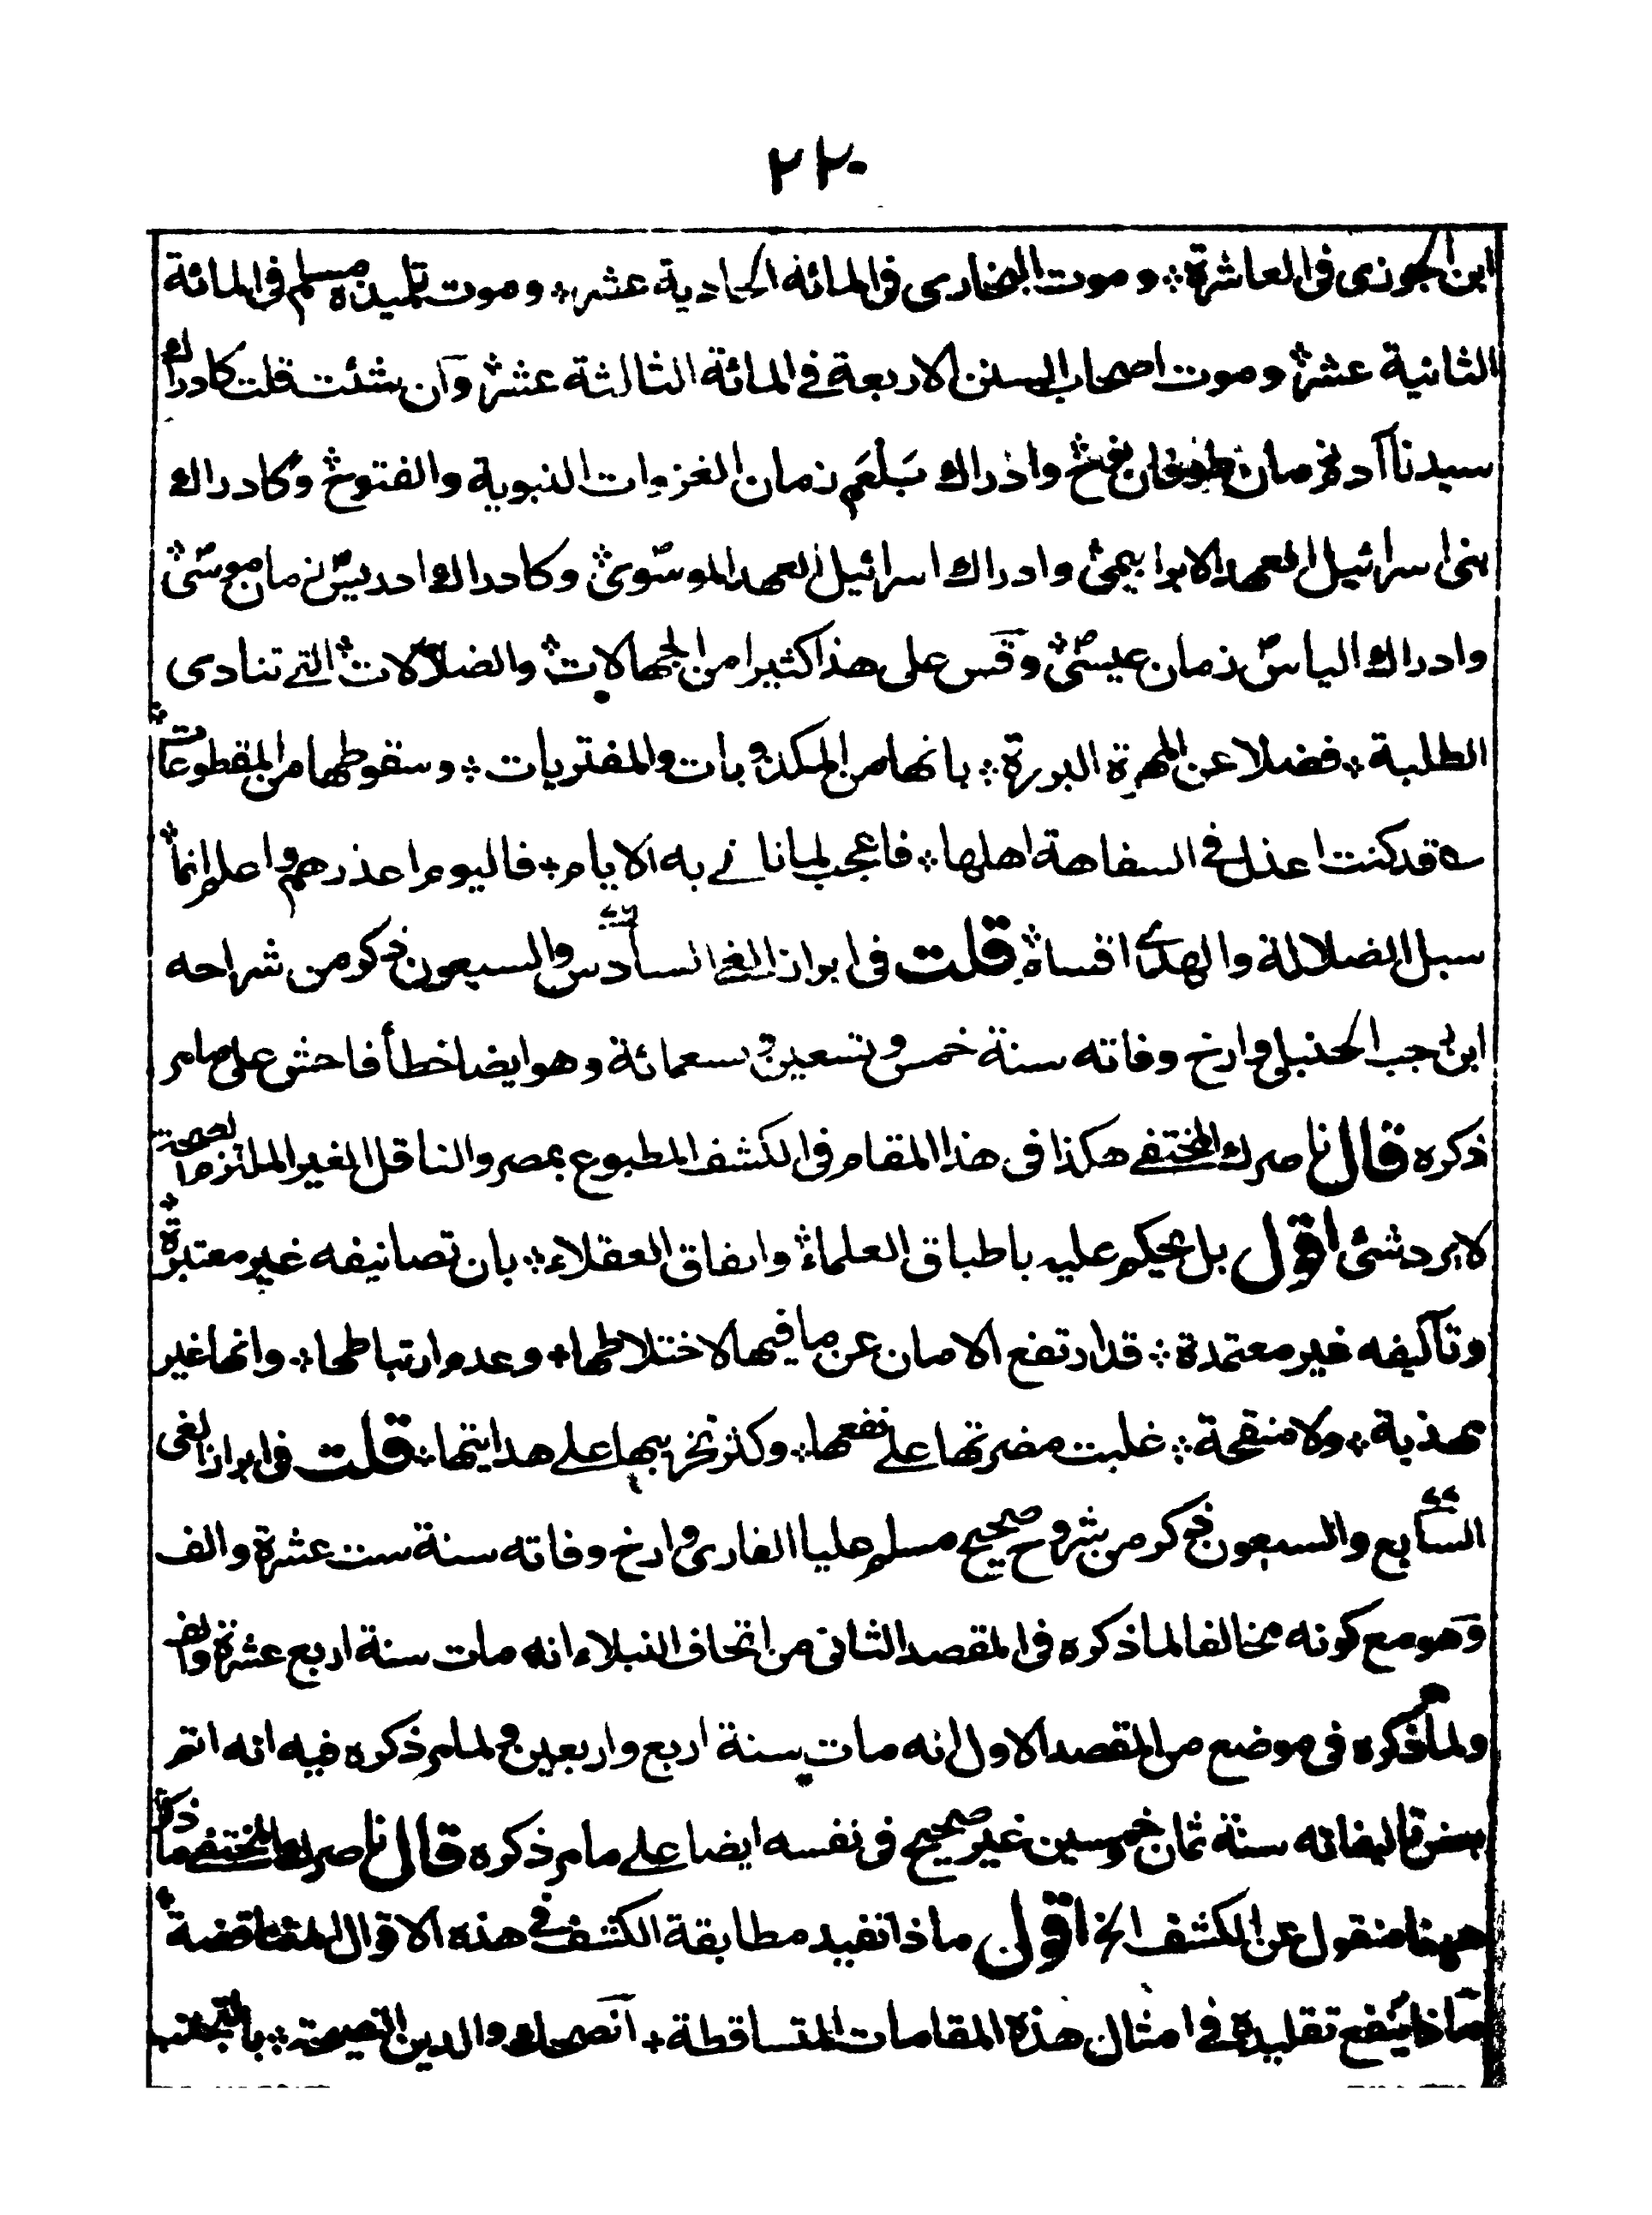 ٢٢٠
ابن الجوزى فى العاشرة ؞ وموت البخارى فى المائة الحادية عشر ؞ وموت تلميذه مسلم فى المائة
الثانية عشر ؞ وموت اصحاب السنن الاربعة فى المائة الثالثة عشر ؞ وان شئت قلت كادراك
سيدنا آدم زمان طوفان نوح ؞ وادراك بلعم زمان الغزوات النبوية والفتوح ؞ وكادراك
بنى اسرائيل العهد الابراهيمى ؞ وادراك اسرائيل العهد الموسوى ؞ وكادراك ادريس زمان موسى ؞
وادراك الياس زمان عيسى ؞ وقس على هذا كثيرا من الجهالات ؞ والضلالات ؞ التى تنادى
الطلبة ؞ فضلا عن المهرة البررة ؞ بانها من المكذوبات والمفتريات ؞ وسقوطها من المقطوعات ؞
ے قد كنت اعذل فى السفاهة اهلها ؞ فاعجب لما تاتى به الايام + فاليوم اعذرهم واعلم انما ؞
سبل الضلالة والهدى اقسام ؞ قلت فى ابراز الغى السادس والسبعون ذكر من شراحه
ابن رجب الحنبلى وارخ وفاته سنة خمس وتسعين وتسعمائة وهو ايضا خطأ فاحش على ما مر
ذكره قال ناصرك المختفى هكذا فى هذا المقام فى الكشف المطبوع بمصر والناقل الغير الملتزم لصحته
لا يرد شئ اقول بل يحكم عليه باطباق العلماء ؞ واتفاق العقلاء ؞ بان تصانيفه غير معتبرة ؞
وتآليفه غير معتمدة ؞ قد ارتفع الامان عن ما فيها لاختلاطها + وعدم ارتباطها ؞ وانها غير
مهذبة ؞ ولا منقحة ؞ غلبت مضرتها على نفعها ؞ وكثر تخريبها على هدايتها ؞ قلت فى ابراز الغى
السابع والسبعون ذكر من شروح صحيح مسلم عليا القارى وارخ وفاته سنة ست عشرة والف
وهو مع كونه مخالفا لما ذكره فى المقصد الثانى من اتحاف النبلاء انه مات سنة اربع عشرة والف
ولما ذكره فى موضع من المقصد الاول انه مات سنة اربع واربعين ولما مر ذكره فيه انه اتم
بعض تاليفاته سنة ثمان خمسين غير صحيح فى نفسه ايضا على ما مر ذكره قال ناصرك المختفى ما ذكر
ههنا منقول عن الكشف الخ اقول ما ذا تفيد مطابقة الكشف فى هذه الاقوال المتناقضة ؞
ما ذا ينفع تقليده فى امثال هذه المقامات المتساقطة + انصحك والدين النصيحة ؞ بالتجنب